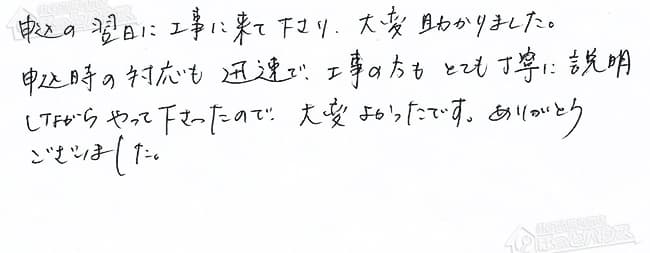 申込の翌日に工事に来て下さり、大変助かりました。
申込時の対応も迅速で、工事の方もとても丁寧に説明
しながらやって下さったので、大変よかったです。ありがとう
ございました。